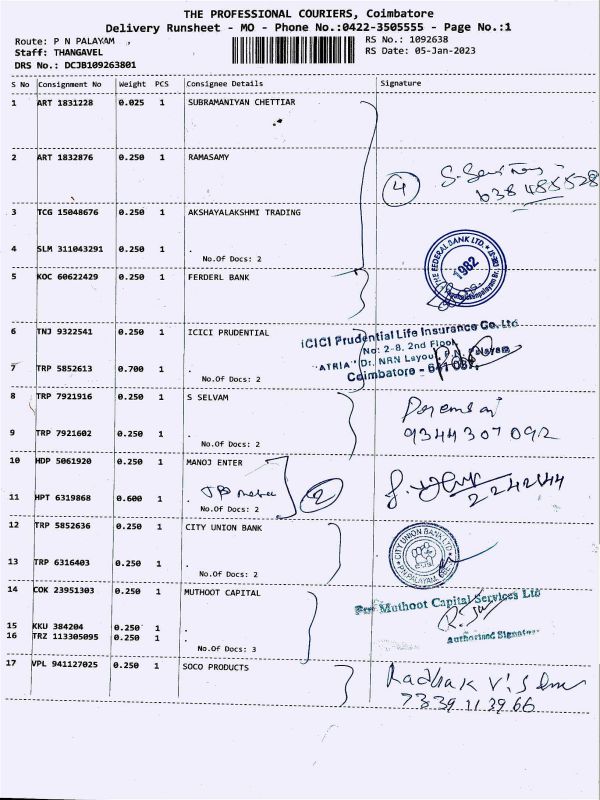 THE PROFESSIONAL COURIERS, Coimbatore
Delivery Runsheet - MO - Phone No.:0422-3505555 - Page No.:1
Route: P N PALAYAM , RS No.: 1092638
Staff: THANGAVEL RS Date: 05-Jan-2023
DRS No.: DCJB109263801
S No Consignment No Weight PCS Consignee Details Signature
1 ART 1831228 0.025 1 SUBRAMANIYAN CHETTIAR
2 ART 1832876 0.250 1 RAMASAMY
4
3 TCG 15048676 0.250 1 AKSHAYALAKSHMI TRADING
4 SLM 311043291 0.250 1 .
No.Of Docs: 2
THE FEDERAL BANK LTD.
1982
5 KOC 60622429 0.250 1 FERDERL BANK
6 TNJ 9322541 0.250 1 ICICI PRUDENTIAL
ICICI Prudential Life Insurance Co. Ltd
No: 2-8, 2nd Floor,
"ATRIA" Dr. NRN Layou
Coimbatore - 641 037.
7 TRP 5852613 0.700 1 .
No.Of Docs: 2
8 TRP 7921916 0.250 1 S SELVAM
9344307092
9 TRP 7921602 0.250 1 .
No.Of Docs: 2
10 HDP 5061920 0.250 1 MANOJ ENTER
2
2242144
11 HPT 6319868 0.600 1 .
No.Of Docs: 2
12 TRP 5852636 0.250 1 CITY UNION BANK
CITY UNION BANK LTD
13 TRP 6316403 0.250 1 .
No.Of Docs: 2
14 COK 23951303 0.250 1 MUTHOOT CAPITAL
For Muthoot Capital Services Ltd
Authorised Signatory
15 KKU 384204 0.250 1 .
16 TRZ 113305095 0.250 1 .
No.Of Docs: 3
17 VPL 941127025 0.250 1 SOCO PRODUCTS
7339113966